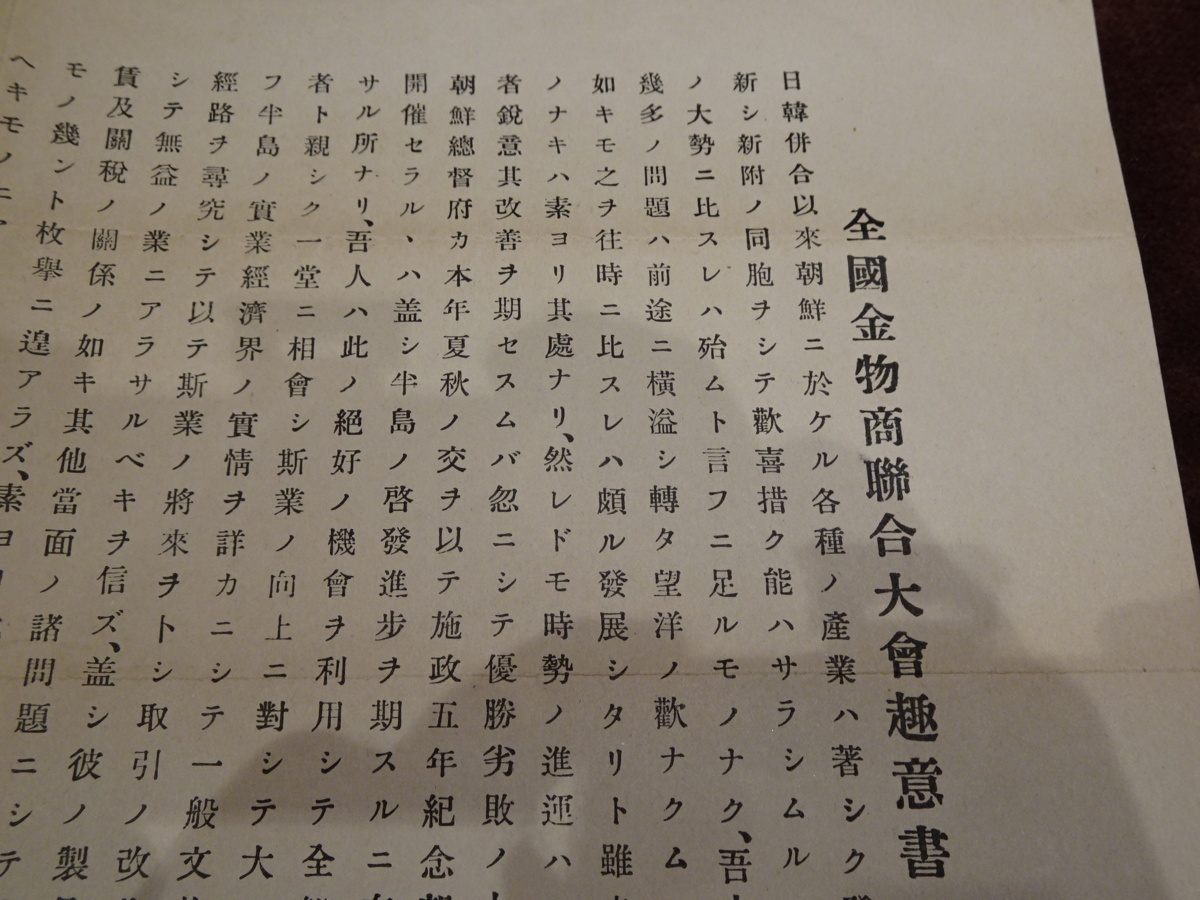 全國金物商聯合大會趣意書
日韓併合以來朝鮮ニ於ケル各種ノ產業ハ著シク
新シ新附ノ同胞ヲシテ歡喜措ク能ハサラシムル
ノ大勢ニ比スレハ殆ムト言フニ足ルモノナク、吾
幾多ノ問題ハ前途ニ橫溢シ轉タ望洋ノ歡ナクム
如キモ之ヲ往時ニ比スレハ頗ル發展シタリト雖
ノナキハ素ヨリ其處ナリ、然レドモ時勢ノ進運ハ
者銳意其改善ヲ期セスムバ忽ニシテ優勝劣敗ノ
朝鮮總督府カ本年夏秋ノ交ヲ以テ施政五年紀念
開催セラル、ハ盖シ半島ノ啓發進步ヲ期スルニ
サル所ナリ、吾人ハ此ノ絕好ノ機會ヲ利用シテ全
者ト親シク一堂ニ相會シ斯業ノ向上ニ對シテ大
フ半島ノ實業經濟界ノ實情ヲ詳カニシテ一般文
經路ヲ尋究シテ以テ斯業ノ將來ヲトシ取引ノ改
シテ無益ノ業ニアラサルベキヲ信ズ、盖シ彼ノ製
賃及關稅ノ關係ノ如キ其他當面ノ諸問題ニシテ
モノ幾ント枚擧ニ遑アラズ、素ヨリ
ヘキモノニ